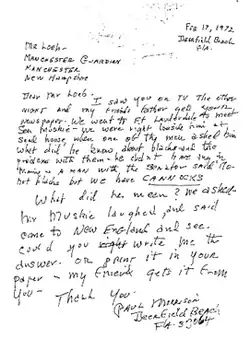 Feb 17, 1972
Deerfield Beach
Fla.
Mr Loeb -
Manchester Guardian
Manchester
New Hampshire
Dear Mr Loeb -
I saw you on TV the other
night and my friends father gets your
newspaper. We went to Ft Lauderdale to meet
Sen Muskie - we were right beside him at
Small house when one of the men asked him
what did he know about blacks and the
problems with them - he didn't have any in
Maine - A man with the Senator said No
not blacks but we have CANNOCKS
What did he mean? We asked -
Mr Muskie laughed, and said
come to New England and see.
could you write me the
answer. or print it in your
paper - my friend gets it from
you - Thank You -
Paul Morrison
Deerfield Beach
Fla. 33064